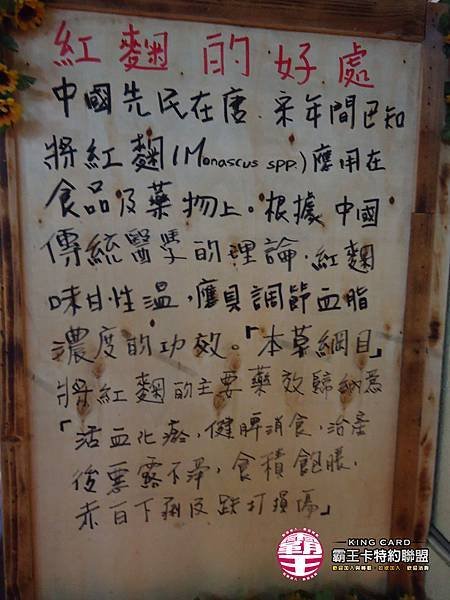 紅麴的好處
中國先民在唐.宋年間已知
將紅麴(Monascus spp.)應用在
食品及藥物上。根據中國
傳統醫學的理論.紅麴
味甘性溫,應具調節血脂
濃度的功效。「本草綱目」
將紅麴的主要藥效歸納為
「活血化瘀,健脾消食,治產
後惡露不淨,食積飽脹,
赤白下痢及跌打損傷」
霸王
KING CARD
霸王卡特約聯盟